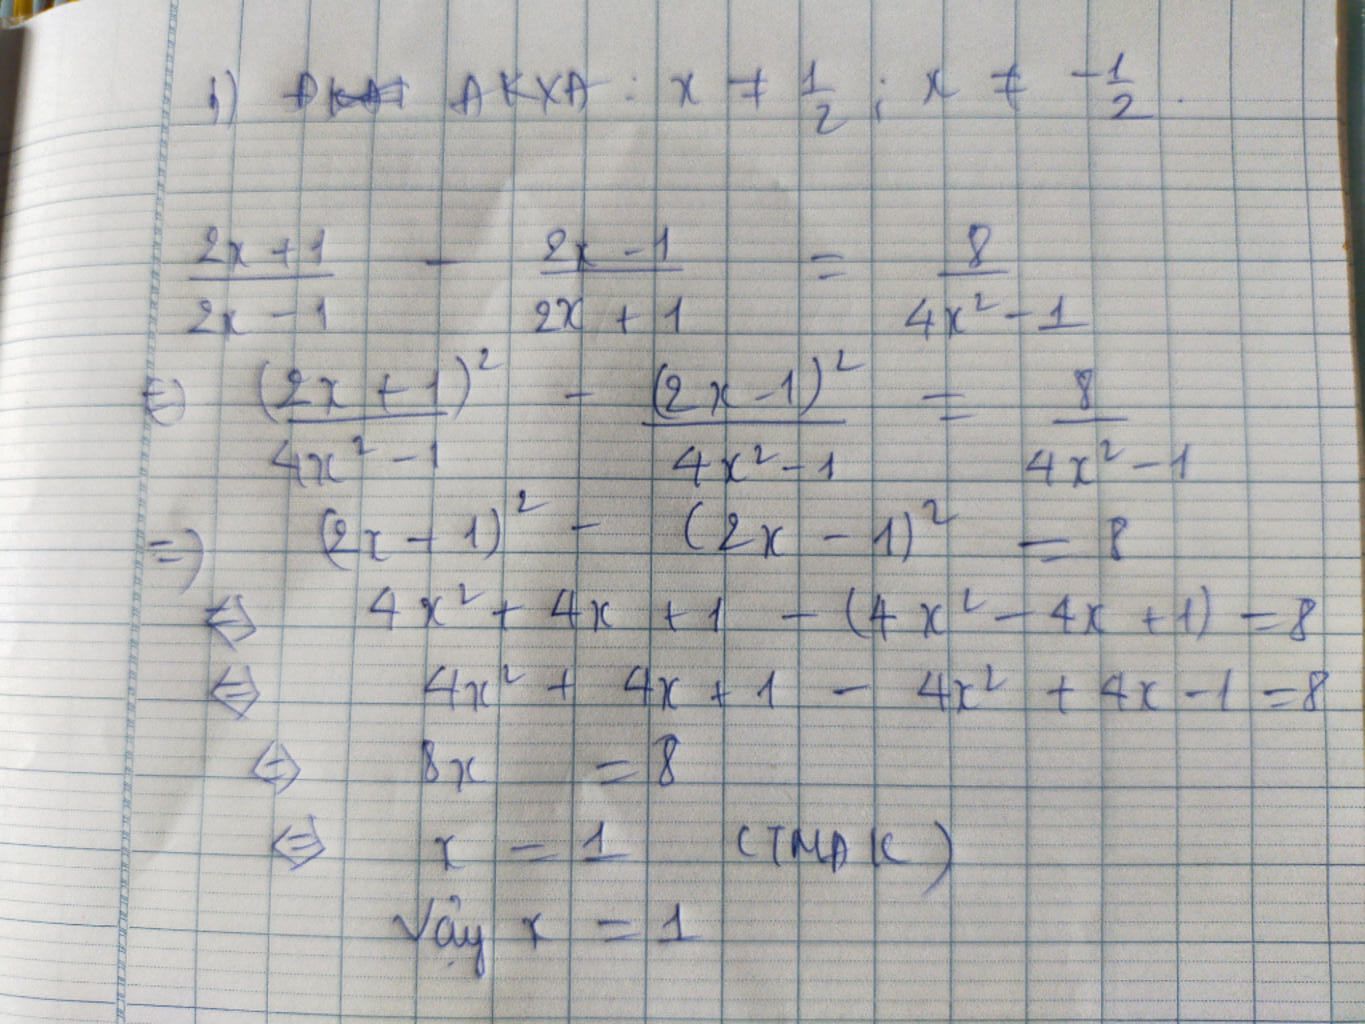 1) ĐKXĐ : x ≠ 1/2 ; x ≠ -1/2.
(2x + 1)/(2x - 1) - (2x - 1)/(2x + 1) = 8/(4x² - 1)
⇔ (2x + 1)²/(4x² - 1) - (2x - 1)²/(4x² - 1) = 8/(4x² - 1)
⇒ (2x + 1)² - (2x - 1)² = 8
⇔ 4x² + 4x + 1 - (4x² - 4x + 1) = 8
⇔ 4x² + 4x + 1 - 4x² + 4x - 1 = 8
⇔ 8x = 8
⇔ x = 1 (TMĐK)
Vậy x = 1